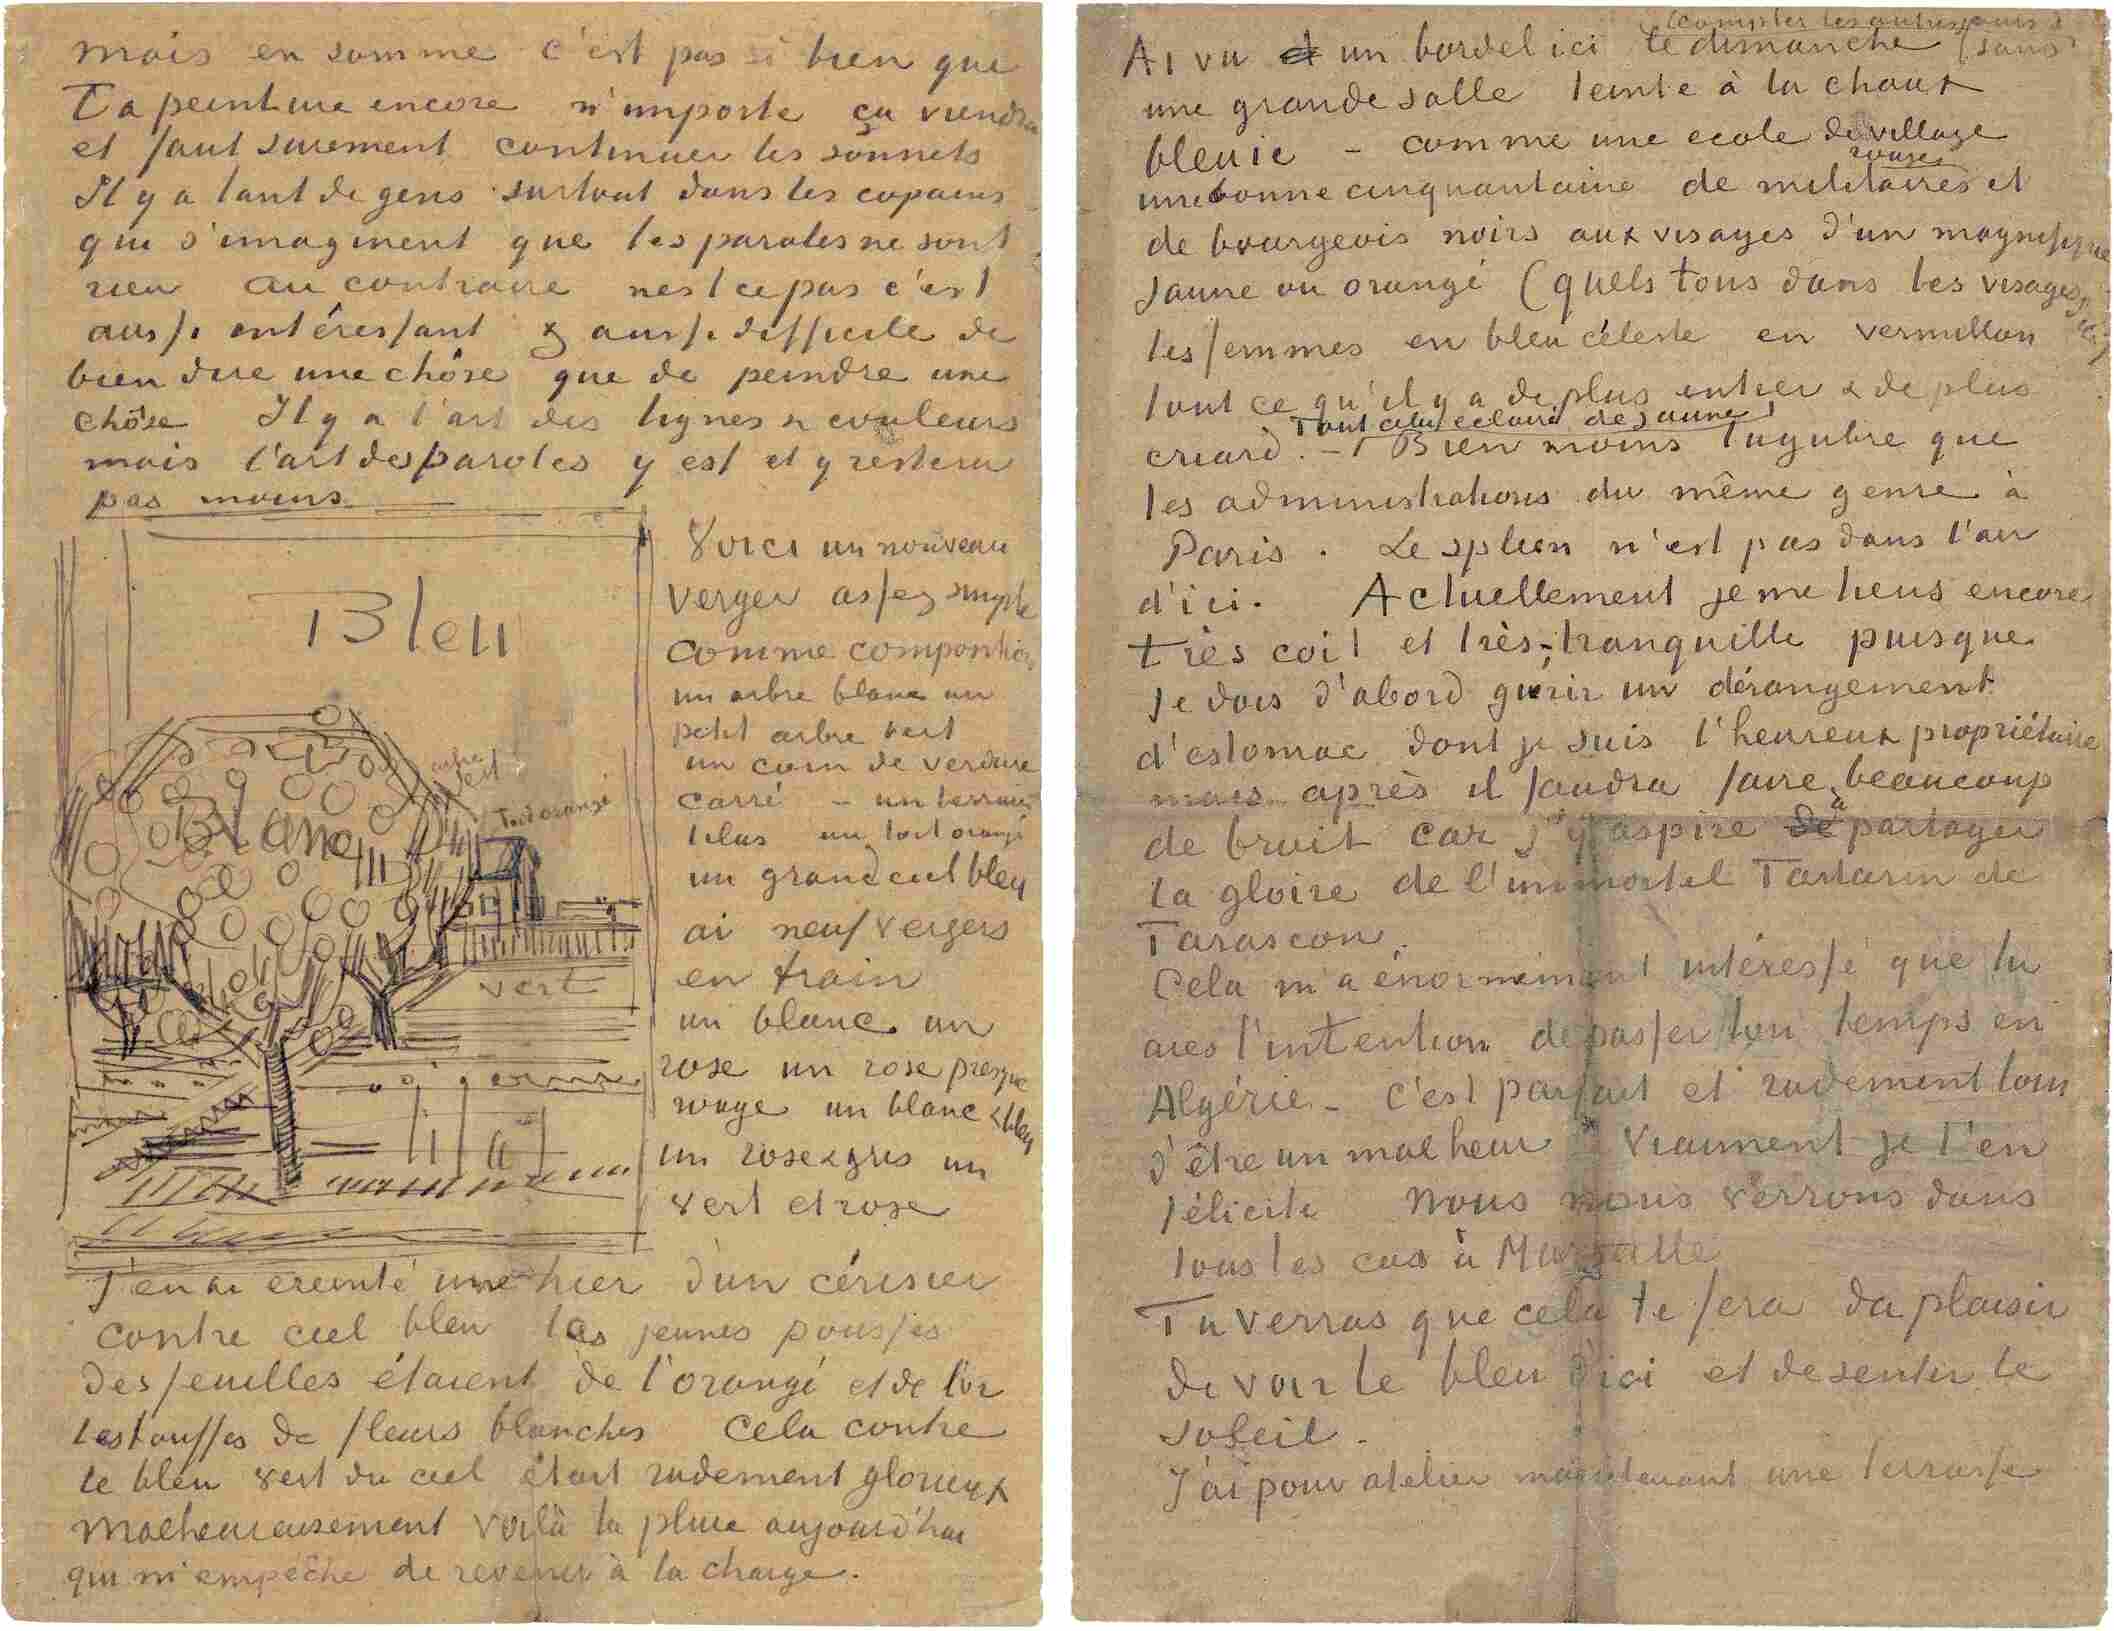 mais en somme c'est pas si bien que
Ta peinture encore n'importe ça viendra
et faut surement continuer les sonnets
Il y a tant de gens surtout dans les copains
qui s'imaginent que les paroles ne sont
rien au contraire nest ce pas c'est
aussi intéressant & aussi difficile de
bien dire une chôse que de peindre une
chôse Il y a l'art des lignes & couleurs
mais l'art des paroles y est et y restera
pas moins
Bleu
arbre
vert
Toit orangé
Blanc
vert
Voici un nouveau
verger assez simple
comme composition
un arbre blanc un
petit arbre vert
un coin de verdure
carré – un terrain
lilas un toit orangé
un grand ciel bleu
ai neuf vergers
en train
un blanc un
rose un rose presque
rouge un blanc & bleu
un rose & gris un
vert et rose
J'en ai éreinté une hier d'un cérisier
contre ciel bleu les jeunes pousses
des feuilles étaient de l'orangé et de l'or
les touffes de fleurs blanches Cela contre
le bleu vert du ciel était rudement glorieux
Malheureusement voilà la pluie aujourd'hui
qui m'empêche de revenir à la charge.
(compter les autres jours)
Ai vu un bordel ici le dimanche (sans
une grande salle teinte à la chaux
bleuie – comme une ecole de village
rouges
une bonne cinquantaine de militaires et
de bourgeois noirs aux visages d'un magnifique
jaune ou orangé (quels tons dans les visages d'ici)
les femmes en bleu céleste en vermillon
tout ce qu'il y a de plus entier & de plus
Tout cela éclairé de jaune
criard. – Bien moins lugubre que
les administrations du même genre à
Paris. Le spleen n'est pas dans l'air
d'ici. Actuellement je me tiens encore
très coit et très-tranquille puisque
je dois d'abord guérir un dérangement
d'estomac dont je suis l'heureux propriétaire
mais après il faudra faire beaucoup
de bruit car j'y aspire de à partager
la gloire de l'immortel Tartarin de
Tarascon.
Cela m'a énormément intéressé que tu
aies l'intention de passer ton temps en
Algérie – c'est parfait et rudement loin
d'être un malheur Vraiment je t'en
félicite Nous nous verrons dans
tous les cas à Marseille
Tu verras que cela te fera du plaisir
de voir le bleu d'ici et de sentir le
soleil –
J'ai pour atelier maintenant une terrasse